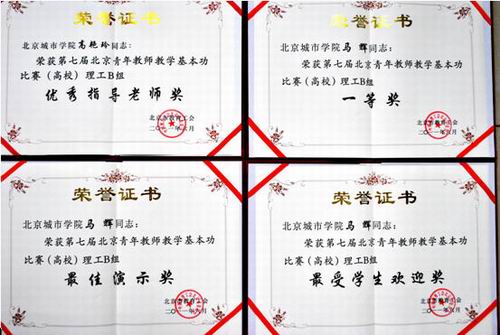 荣誉证书
北京城市学院高艳玲同志：
荣获第七届北京青年教师教学基本功
比赛（高校）理工B组
优秀指导老师奖
北京市教育工会
二〇一一年六月
荣誉证书
北京城市学院马辉同志：
荣获第七届北京青年教师教学基本功
比赛（高校）理工B组
一等奖
北京市教育工会
二〇一一年六月
荣誉证书
北京城市学院马辉同志：
荣获第七届北京青年教师教学基本功
比赛（高校）理工B组
最佳演示奖
北京市教育工会
二〇一一年六月
荣誉证书
北京城市学院马辉同志：
荣获第七届北京青年教师教学基本功
比赛（高校）理工B组
最受学生欢迎奖
北京市教育工会
二〇一一年六月